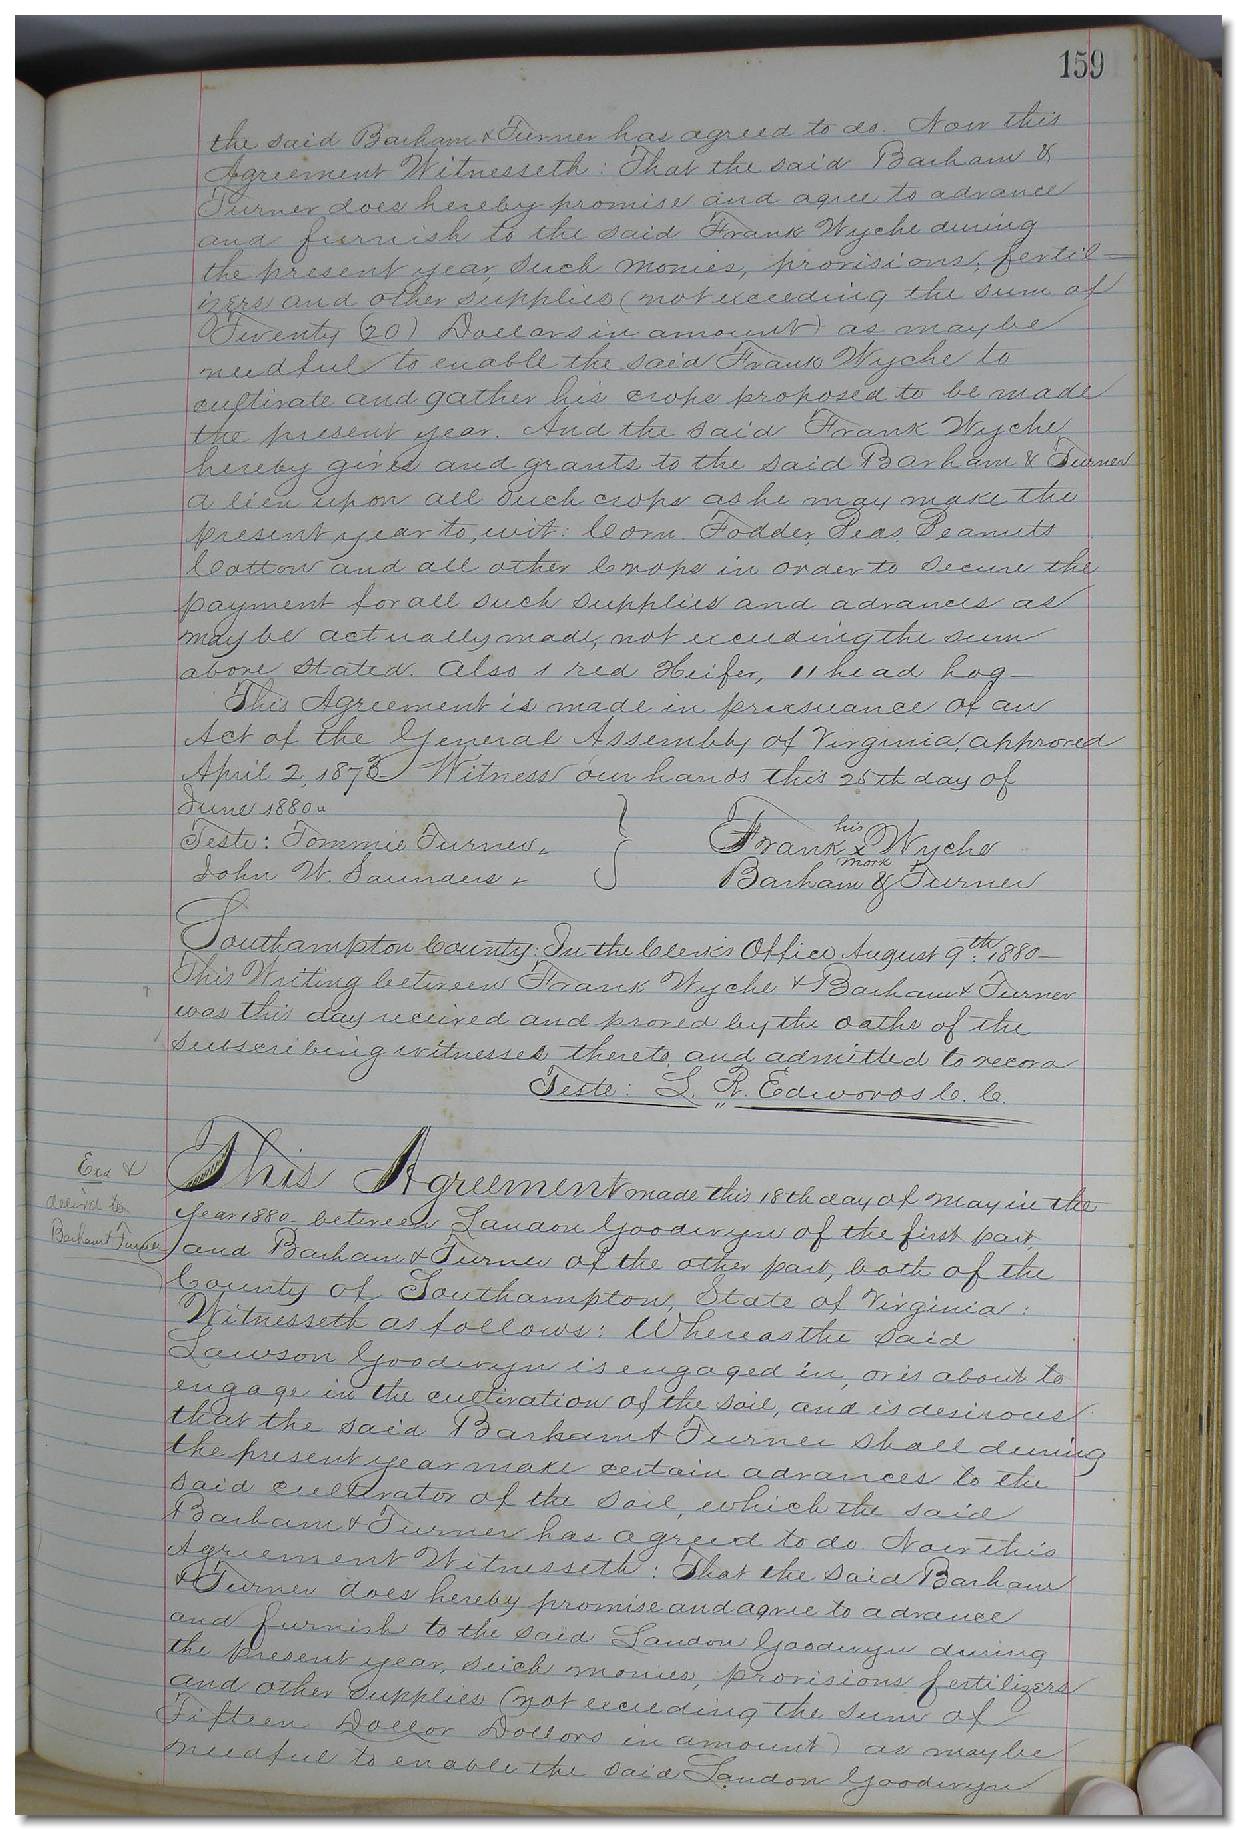 159
the said Barham & Turner has agreed to do. Now this
Agreement Witnesseth: That the said Barham &
Turner does hereby promise and agree to advance
and furnish to the said Frank Wyche during
the present year, such monies, provisions, fertil-
izers and other supplies (not exceeding the sum of
Twenty (20) Dollars in amount) as may be
needful to enable the said Frank Wyche to
cultivate and gather his crops proposed to be made
the present year. And the said Frank Wyche
hereby gives and grants to the said Barham & Turner
a lien upon all such crops as he may make the
present year to, wit: Corn. Fodder, Peas, Peanuts
Cotton and all other Crops in order to secure the
payment for all such supplies and advances as
may be actually made, not exceeding the sum
above stated. Also 1 red Heifer, 11 head hog-
This Agreement is made in pursuance of an
Act of the General Assembly of Virginia, approved
April 2, 1873 Witness our hands this 25th day of
June 1880.
Teste: Tommie Turner.
John W. Saunders.
his
Frank x Wyche
mark
Barham & Turner
Southampton County: In the Clerk's Office August 9th. 1880-
This Writing between Frank Wyche & Barham & Turner
was this day received and proved by the oaths of the
subscribing witnesses thereto and admitted to record
Teste: L. R. Edwards C. C.
Exd &
delivd to
Barham & Turner
This Agreement made this 18th day of May in the
year 1880. between Landon Goodwyn of the first part,
and Barham & Turner of the other part, both of the
County of Southampton, State of Virginia:
Witnesseth as follows: Whereas the said
Lawson Goodwyn is engaged in, or is about to
engage in the cultivation of the soil, and is desirous
that the said Barham & Turner shall during
the present year make certain advances to the
said cultivator of the soil, which the said
Barham & Turner has agreed to do Now this
Agreement Witnesseth: That the said Barham
& Turner does hereby promise and agree to advance
and furnish to the said Landon Goodwyn during
the present year, such monies, provisions fertilizers
and other supplies (not exceeding the sum of
Fifteen Dollar Dollars in amount) as may be
needful to enable the said Landon Goodwyn